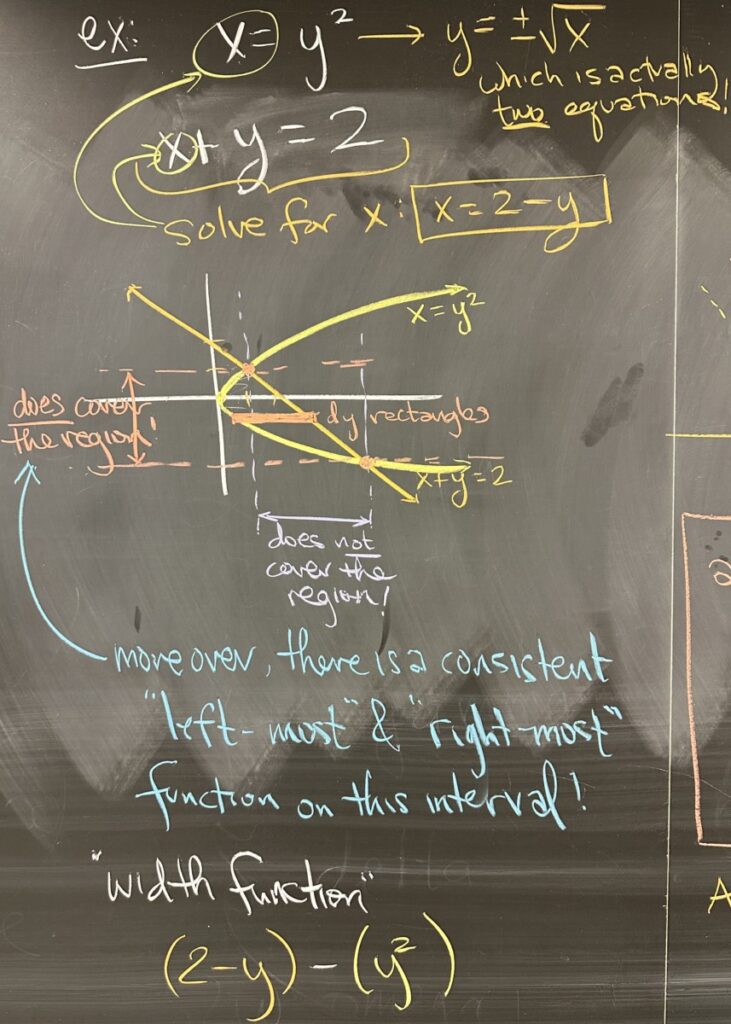 ex: x = y² → y = ±√x
which is actually
two equations!
x + y = 2
solve for x: x = 2 - y
x = y²
does cover
the region!
dy rectangles
x + y = 2
does not
cover the
region!
moreover, there is a consistent
"left-most" & "right-most"
function on this interval!
"width function"
(2 - y) - (y²)
A